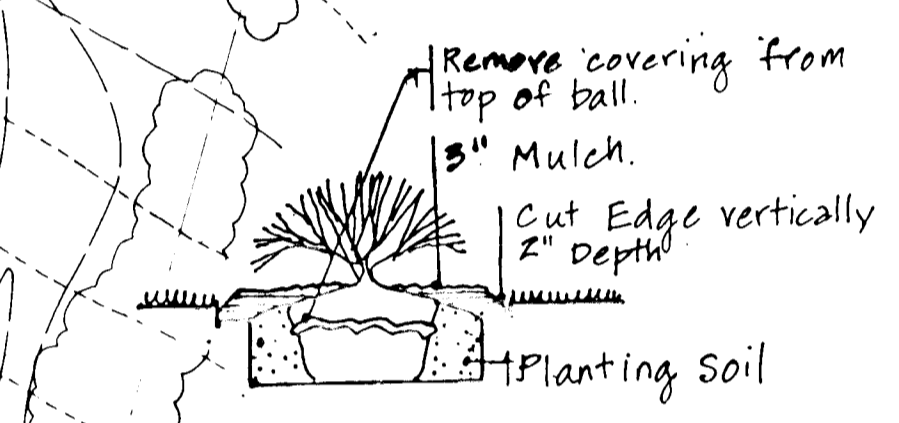 Remove covering from
top of ball.
3" Mulch.
Cut Edge vertically
2" Depth
Planting Soil